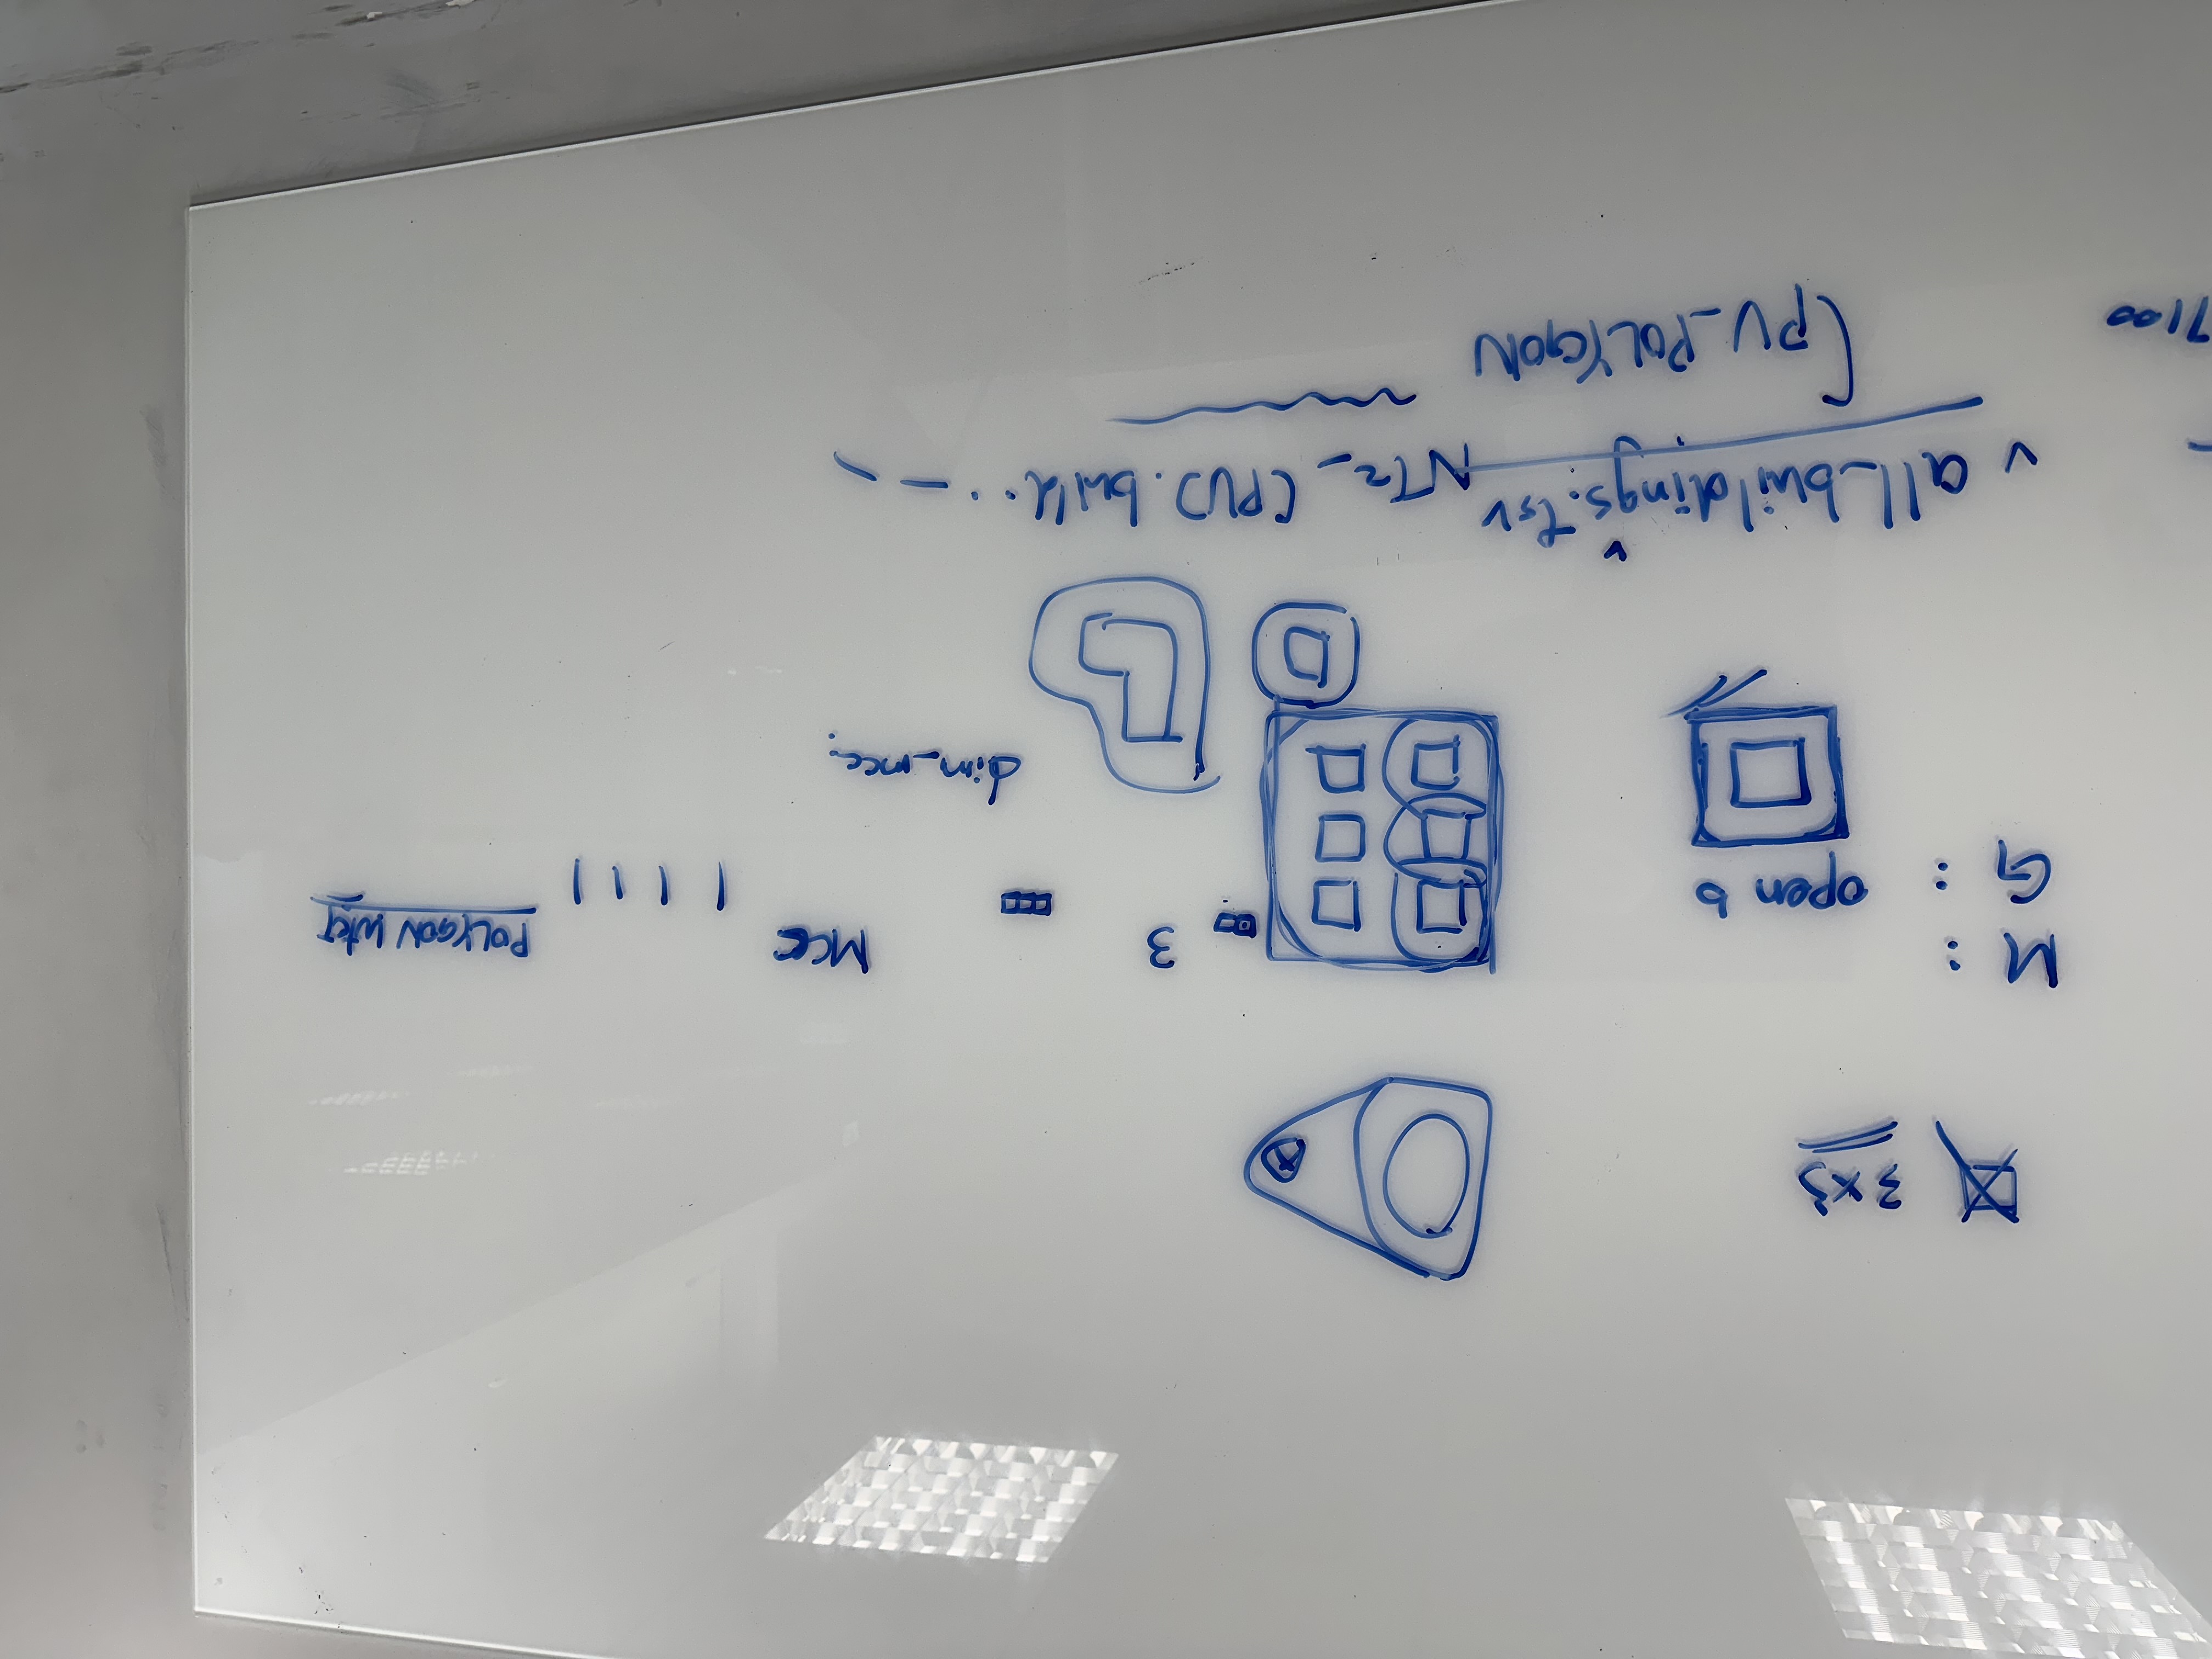 3x3
M :
G :
open b
3
MCC
POLYGON WKT
dim_mcc.
all_buildings.tsv
(PV). build.. - -
(PV_POLYGON
7100